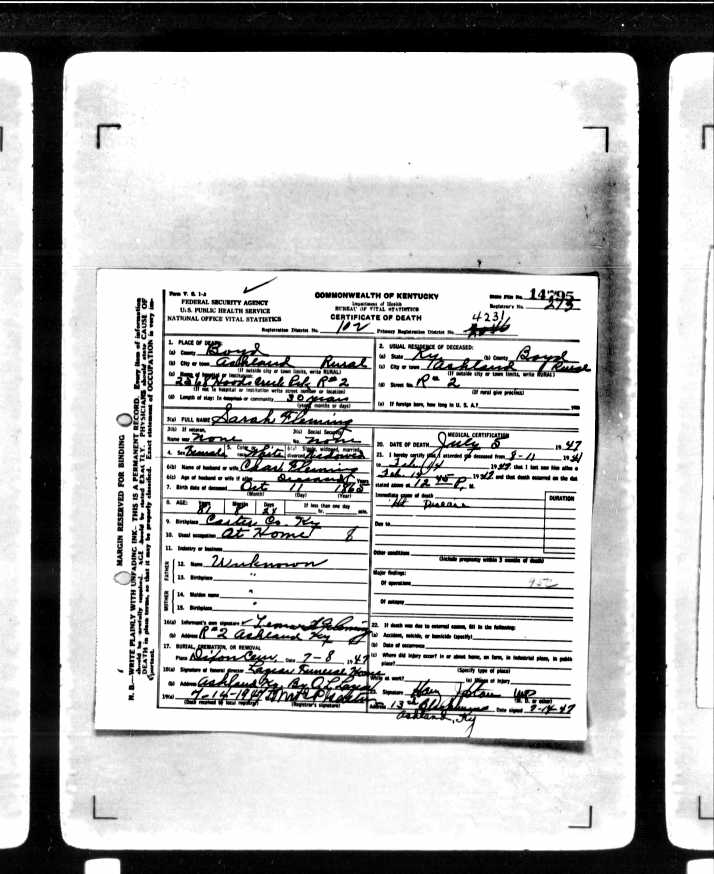 Form V. S. 1-A
FEDERAL SECURITY AGENCY
U. S. PUBLIC HEALTH SERVICE
NATIONAL OFFICE VITAL STATISTICS
COMMONWEALTH OF KENTUCKY
Department of Health
BUREAU OF VITAL STATISTICS
CERTIFICATE OF DEATH
State File No. 14795
Registrar's No. 273
4231
Registration District No. 102 Primary Registration District No.
N. B. WRITE PLAINLY WITH UNFADING INK. THIS IS A PERMANENT RECORD. Every item of information
MARGIN RESERVED FOR BINDING
1. PLACE OF DEATH:
(a) County Boyd
(b) City or town Ashland Rural
(If outside city or town limits, write RURAL)
(c) Name of hospital or institution:
R#2
(If not in hospital or institution write street number or location)
(d) Length of stay: In hospital or community 30 years
(years months or days)
2. USUAL RESIDENCE OF DECEASED:
(a) State Ky (b) County Boyd
(c) City or town Ashland Rural
(If outside city or town limits, write RURAL)
(d) Street No. R# 2
(If rural give precinct)
(e) If foreign born, how long in U. S. A.? years
3(a) FULL NAME Sarah Fleming
3(b) If veteran,
Name war None
3(c) Social Security
No. none
4. Sex Female 5. Color or race White 6(a) Single, widowed, married, divorced Widowed
6(b) Name of husband or wife Chas Fleming
6(c) Age of husband or wife if alive Deceased Years
7. Birth date of deceased Oct 11 1865
(Month) (Day) (Year)
8. AGE: Years Months Days If less than one day
81 8 24 hr. min.
9. Birthplace Carter Co. Ky
10. Usual occupation At Home
11. Industry or business
FATHER
12. Name Unknown
13. Birthplace "
MOTHER
14. Maiden name "
15. Birthplace "
16(a) Informant's own signature Fleming
(b) Address R#2 Ashland Ky
17. BURIAL, CREMATION, OR REMOVAL
Place Dixon Cem. Date 7-8 1947
18(a) Signature of funeral director Lazear Funeral Home
(b) Address Ashland Ky. By
19(a) 7-14-1947
(Date received by local registrar) (Registrar's signature)
MEDICAL CERTIFICATION
20. DATE OF DEATH July 5 1947
21. I hereby certify that I attended the deceased from
that I last saw him alive on
and that death occurred on the date
stated above at 12 45 P. M.
Immediate cause of death DURATION
Ht Disease
Due to
Other conditions
(Include pregnancy within 3 months of death)
Major findings:
Of operations
Of autopsy
22. If death was due to external causes, fill in the following:
(a) Accident, suicide, or homicide (specify)
(b) Date of occurrence
(c) Where did injury occur? in or about home, on farm, in industrial place, in public
place?
(Specify type of place)
While at work? (e) Means of injury
Signature MD
(M. D. or other)
Address 13th Date signed 7-14-47
Ashland, Ky